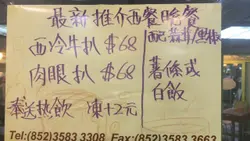 最新推介西餐晚餐
西冷牛扒 $68
肉眼扒 $68
奉送热飲 凍+2元
配蒜拼/黑椒
薯條或
白飯
Tel:(852)3583 3308 Fax:(852)3583 3663